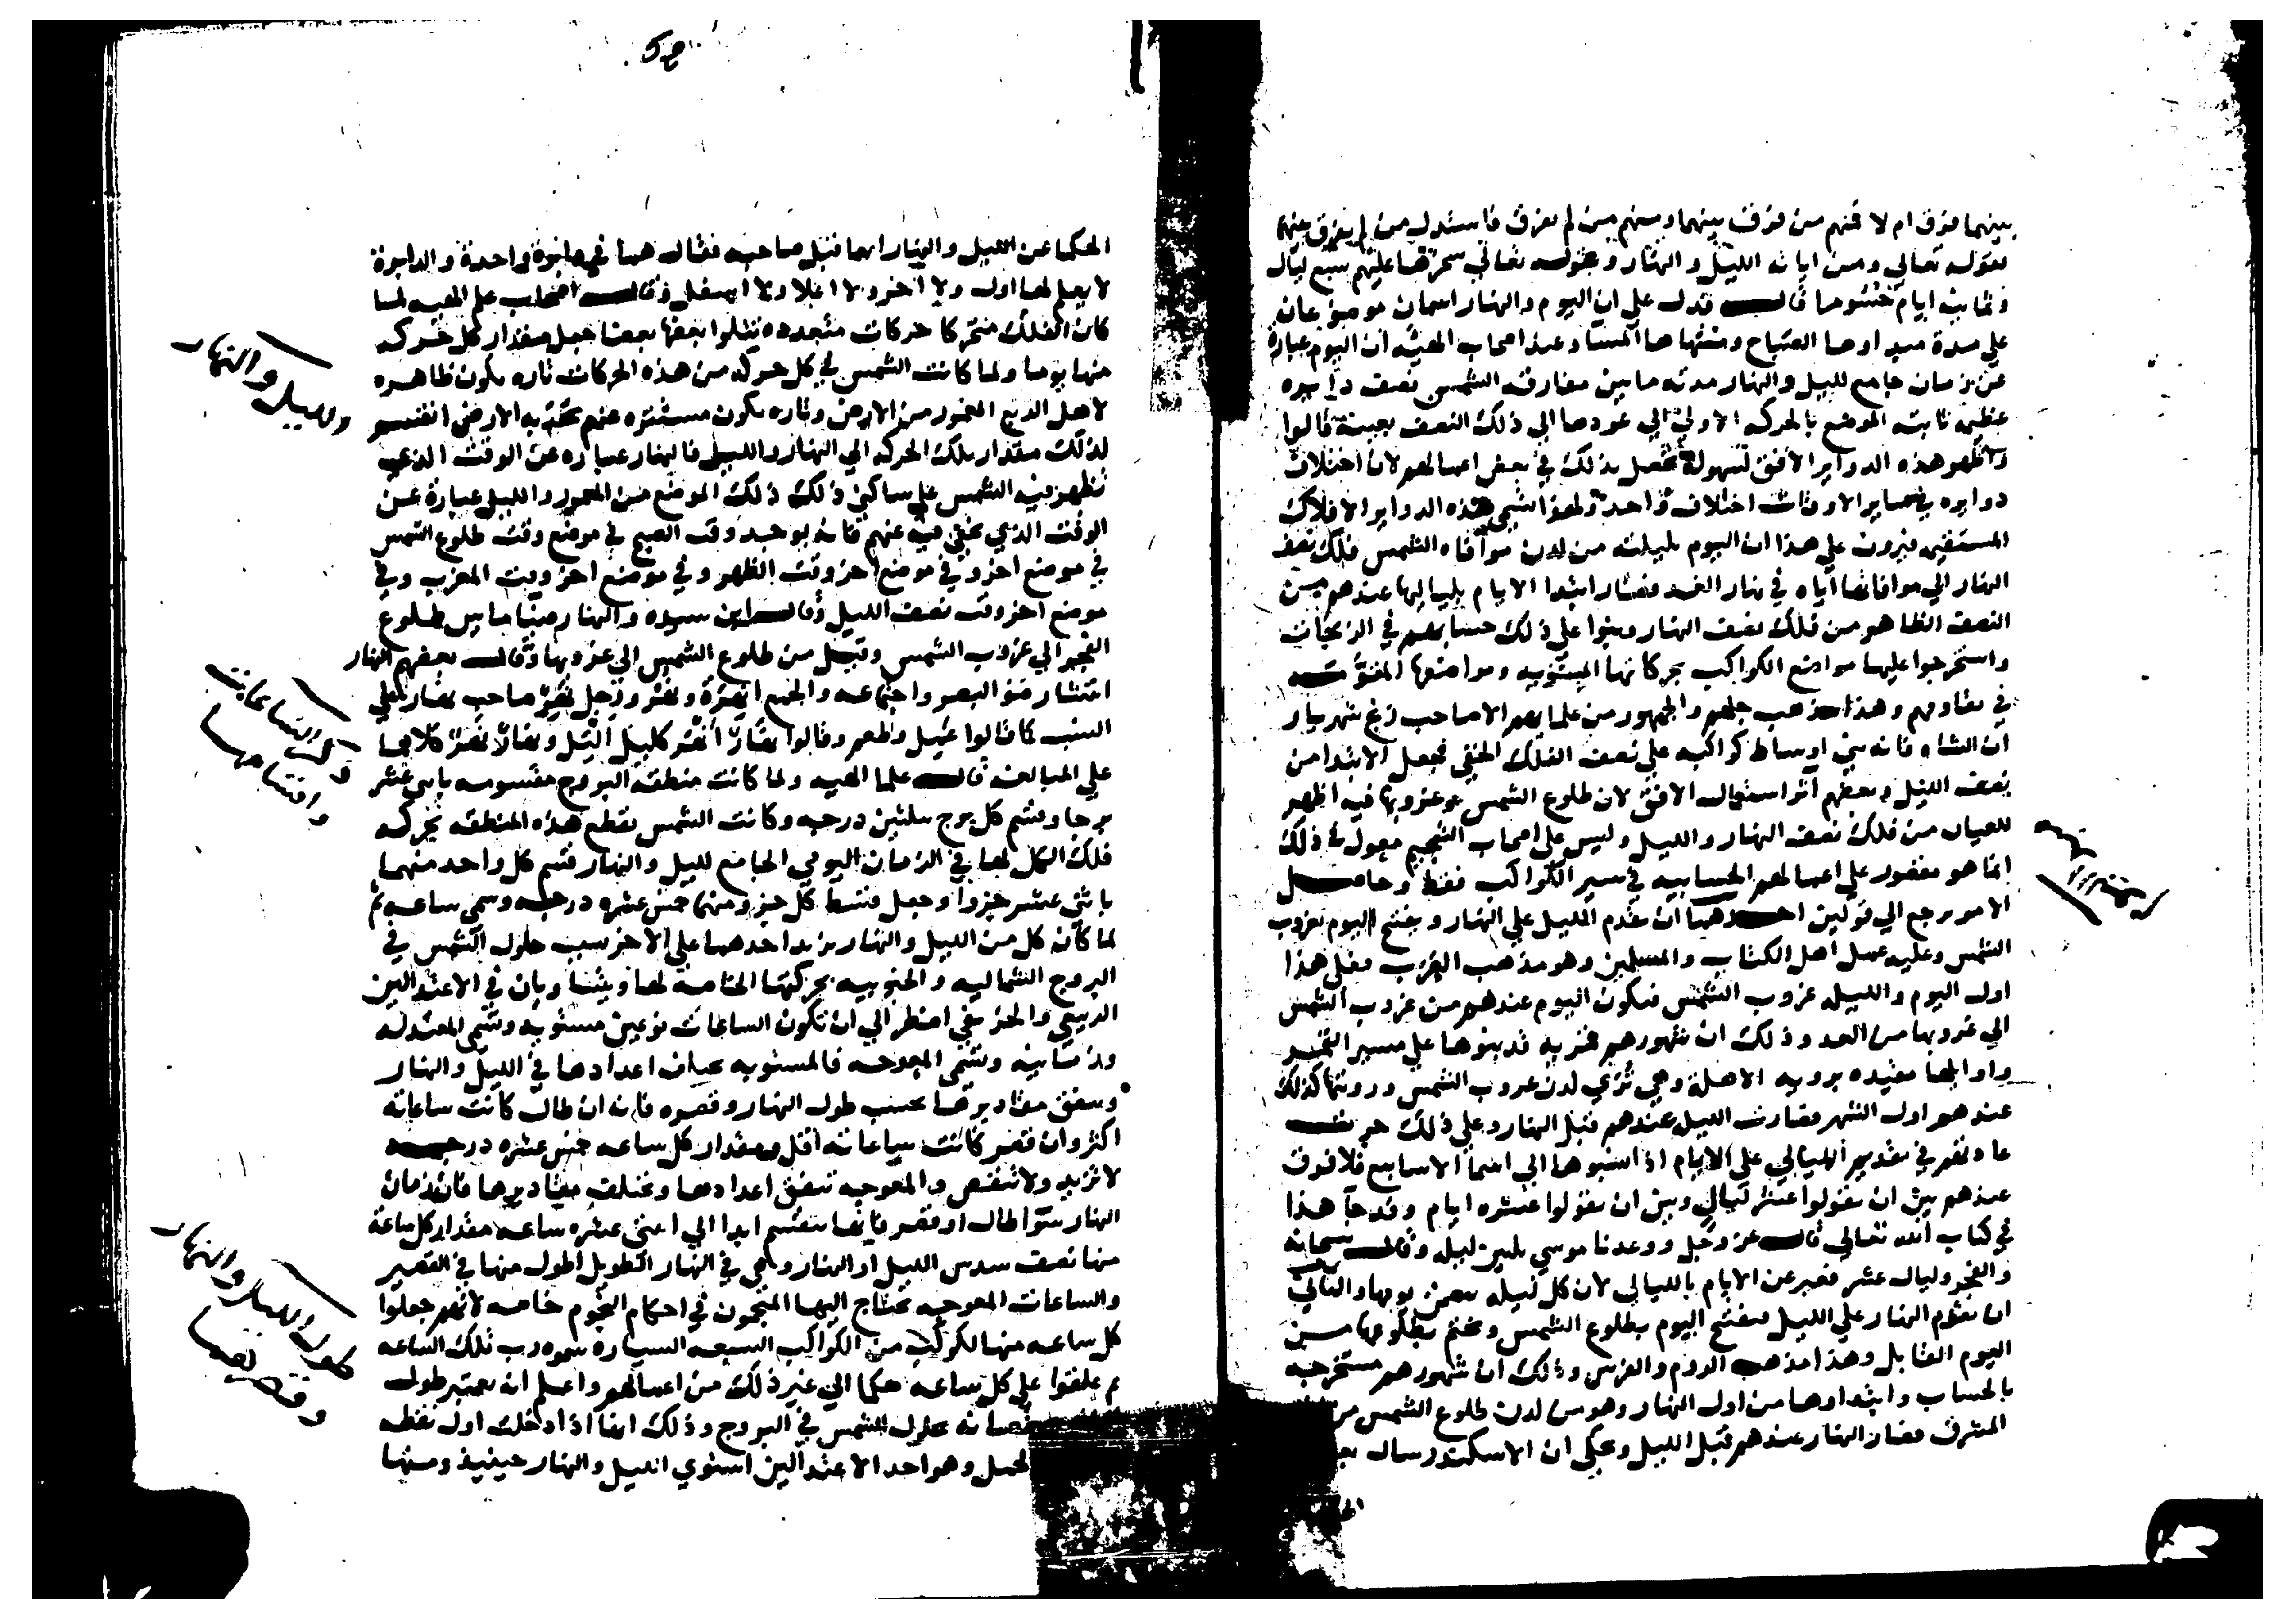 بينهما فرق ام لا فمنهم من فرق بينهما ومنهم من لم يفرق فاستدل من لم يفرق بينهما
بقوله تعالي ومن اياته الليل والنهار وبقوله تعالي سخرها عليهم سبع ليال
وثمانية ايام حسوما قال فدل علي ان اليوم والنهار اسمان موضوعان
علي مدة مبداوها الصباح ومنتهاها المساء وعند اصحاب الهيئه ان اليوم عبارة
عن زمان جامع لليل والنهار مدته ما بين مفارقه الشمس نصف دايره
عظيمه ثابته الموضع بالحركه الاولي الي عودها الي ذلك النصف بعينه قالوا
واظهر هذه الدواير الافق لسهولة تحصل بذلك في بعض اعمالهم لان اختلاف
دوايره في ساير الاوقات اختلاف واحد ولهذا تسمي هذه الدواير الافلاك
المستقيمه فيرون علي هذا ان اليوم بليلته من لدن موافاه الشمس فلك نصف
النهار الي موافاتها اياه في نهار الغد فصار ابتدا الايام بلياليها عندهم من
النصف الظاهر من فلك نصف النهار وبنوا علي ذلك حسابهم في الزيجات
واستخرجوا عليها مواضع الكواكب بحركاتها المستويه ومواضعها المقومه
في تقاويم وهذا مذهب جلهم والجمهور من علمايهم الا صاحب زيج شهريار
ان الشاه فانه بني اوساط كواكبه علي نصف الفلك الخفي فجعل الابتدا من
نصف الليل وبعضهم آثر استعمال الافق لان طلوع الشمس وغروبها فيه اظهر
للعيان من فلك نصف النهار والليل وليس علي اصحاب التنجيم معول في ذلك
انما هو مقصور علي اعمالهم الحسابيه في سير الكواكب فقط وحاصل
الامر يرجع الي قولين احدهما ان تقدم الليل علي النهار ويفتتح اليوم بغروب
الشمس وعليه عمل اهل الكتاب والمسلمين وهو مذهب العرب فعلي هذا
اول اليوم والليله غروب الشمس فيكون اليوم عندهم من غروب الشمس
الي غروبها من الغد وذلك ان شهورهم قمريه قد بنوها علي مسير القمر
واوايلها مقيده برويه الاهلة وهي تري لدن غروب الشمس ورويتها كذلك
عندهم اول الشهر فصارت الليل عندهم قبل النهار وعلي ذلك جرت
عادتهم في تقديم الليالي علي الايام اذا نسبوها الي اسما الاسابيع فلا فرق
عندهم بين ان يقولوا عشر ليالي وبين ان يقولوا عشره ايام وقد جآ هذا
في كتاب الله تعالي قال عز وجل ووعدنا موسي ثلثين ليله وقال سبحانه
والفجر وليال عشر فعبر عن الايام بالليالي لان كل ليله تتضمن يومها والثاني
ان تقدم النهار علي الليل فيفتتح اليوم بطلوع الشمس ويختم بطلوعها من
اليوم القابل وهذا مذهب الروم والفرس وذلك ان شهورهم مستخرجه
بالحساب وابتداوها من اول النهار وهو من لدن طلوع الشمس من
المشرق فصار النهار عندهم قبل الليل ويحكي ان الاسكندر سال
الحكما عن الليل والنهار ايهما قبل صاحبه فقال هما في دايرة واحدة والدايرة
لا يعلم لها اول ولا اخر ولا اعلا ولا اسفل وقال اصحاب علم الهييه لما
كان الفلك متحركا حركات متجدده يتلوا بعضها بعضا جعل مقدار كل حركه
منها يوما ولما كانت الشمس في كل حركه من هذه الحركات تاره يكون ظاهره
لاهل الربع المعمور من الارض وتاره يكون مستتره عنهم بحدبه الارض انقسم
لذلك مقدار تلك الحركه الي النهار والليل فالنهار عباره عن الوقت الذي
تظهر فيه الشمس علي ساكني ذلك الموضع من المعمور والليل عبارة عن
الوقت الذي تخفي فيه عنهم فانه يوجد وقت الصبح في موضع وقت طلوع الشمس
في موضع اخر وفي موضع اخر وقت الظهر وفي موضع اخر وقت المغرب وفي
موضع اخر وقت نصف الليل وقال ابن سيده والنهار ضيا ما بين طلوع
الفجر الي غروب الشمس وقيل من طلوع الشمس الي غروبها وقال بعضهم النهار
انتشار ضو البصر واجتماعه والجمع انهرة ونهر ورجل نهر صاحب نهار علي
النسب كما قالوا عمل وطعم وقالوا نهار انهر كليل اليل ونهار نهر كلاهما
علي المبالغه قال علما الهييه ولما كانت منطقة البروج مقسومه باثني عشر
برجا وقسم كل برج بثلثين درجه وكانت الشمس تقطع هذه المنطقه بحركه
فلك الكل لها في الزمان اليومي الجامع لليل والنهار قسم كل واحد منهما
باثني عشر جزوا وجعل قسط كل جزو منهما خمس عشره درجه وسمي ساعه ثم
لما كان كل من الليل والنهار يزيد احدهما علي الاخر بسبب حلول الشمس في
البروج الشماليه والجنوبيه بحركتها الخاصه لها ويتساويان في الاعتدالين
الربيعي والخريفي اضطر الي ان تكون الساعات نوعين مستويه وتسمي المعتدله
وزمانيه وتسمي المعوجه فالمستويه يختلف اعدادها في الليل والنهار
وتتفق مقاديرها بحسب طول النهار وقصره فانه ان طال كانت ساعاته
اكثر وان قصر كانت ساعاته اقل ومقدار كل ساعه خمس عشره درجه
لا تزيد ولا تنقص والمعوجه تتفق اعدادها وتختلف مقاديرها فان زمان
النهار سوآ طال او قصر فانها تنقسم ابدا الي اثني عشره ساعه مقدار كل ساعة
منها نصف سدس الليل او النهار وهي في النهار الطويل اطول منها في القصير
والساعات المعوجه يحتاج اليها المنجمون في احكام النجوم خاصه لانهم جعلوا
كل ساعه منها لكوكب من الكواكب السبعه السياره سموه رب تلك الساعه
ثم علقوا علي كل ساعه حكما الي غير ذلك من اعمالهم واعلم انه يعتبر طول
نقصانه بحلول الشمس في البروج وذلك انها اذا دخلت اول نقطه
الحمل وهو احد الاعتدالين استوي الليل والنهار حينيذ ومنها
والليل والنهار
واقسامها
طول الليل والنهار
وقصرهما